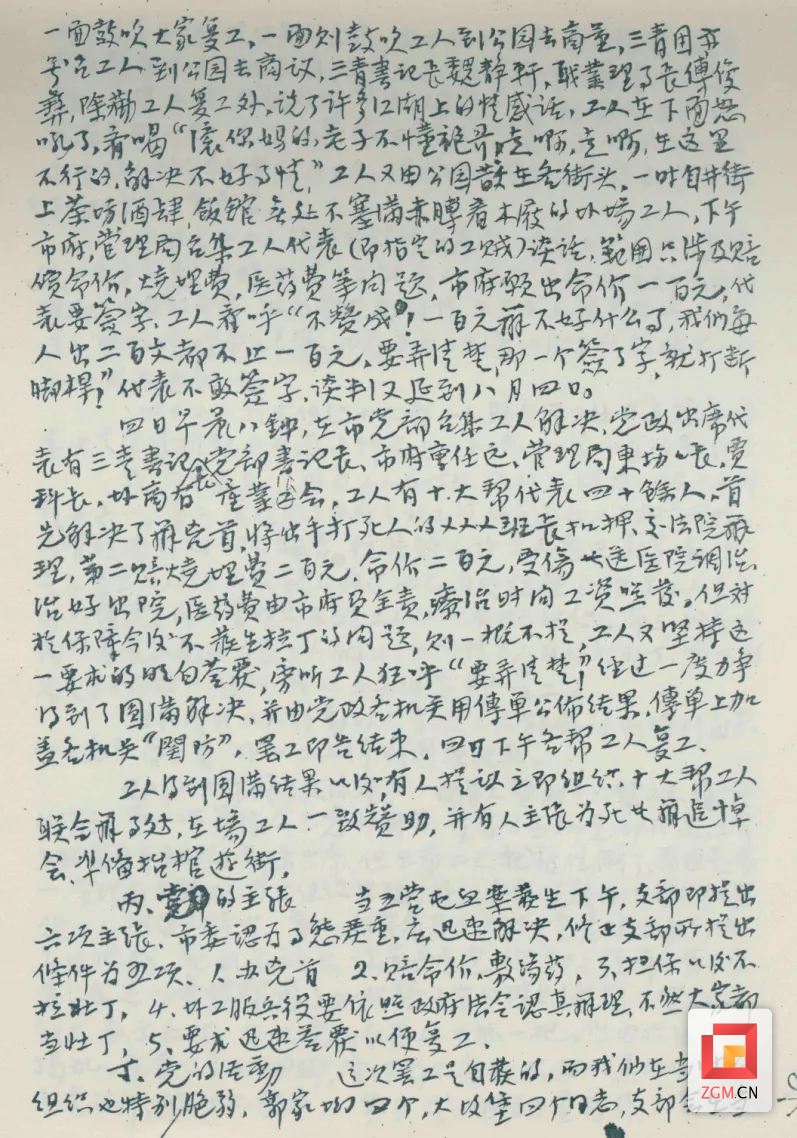 一面鼓吹大家复工,一面则鼓吹工人到公园去商量,三青团亦
号召工人到公园去商议,三青书记长魏静轩,职业理事长傅俊
彝,除劝工人复工外,说了许多江湖上的情感话,工人在下面怒
吼了,齐喝“滚你妈的,老子不懂袍哥,走啊,走啊,在这里
不行的,解决不好事情,”工人又由公园散在各街头,一时自井街
上茶坊酒肆,饭馆无处不塞满赤膊着木屐的外场工人,下午
市府,管理局召集工人代表(即指定的工贼)谈话,範围只涉及赔
偿命价,烧埋费,医药费等问题,市府愿出命价一百元,代
表要签字,工人齐呼“不赞成!一百元办不好什么事,我们每
人出二百文都不止一百元,要弄清楚,那一个签了字,就打断
脚桿”代表不敢签字,谈判又延到八月四日。
四日早晨八鐘,在市党部召集工人解决,党政出席代
表有三青书记长,党部书记长、市府重任远、管理局东场场长,贾
科长,场商有产业工会,工人有十大帮代表四十馀人,首
先解决了办凶首,将出手打死人的×××班长扣押,交法院办
理,第二赔烧埋费二百元,命价二百元,受傷者送医院调治,
治好出院,医药费由市府负全责,療治时间工资照发。但对
於保障今後不發生拉丁的问题,则一概不提,工人又坚持这
一要求的明白答覆,旁听工人狂呼“要弄清楚!”经过一度力争
得到了圆满解决,并由党政各机关用傳单公佈结果,傳单上加
盖各机关“関防”,罢工即告结束,四日下午各帮工人复工。
工人得到圆满结果以後,有人提议立即组织十大帮工人
联合办事处,在场工人一致赞助,并有人主张为死者办追悼
会,準备抬棺遊街,
丙、党的主张 当工营屯血案發生下午,支部即提出
六项主张,市委認为事態严重,应迅速解决,修正支部所提出
條件为五项、1.办凶首 2.赔命价,敷湯药,3.担保以後不
拉壮丁,4.外工服兵役要依照政府法令認真辦理,不然大家都
当壮丁,5.要求迅速答覆以便复工.
丁、党的活動 这次罢工是自發的,而我们在
组织也特别脆弱,郭家坳四个,大坟堡四个同志,支部
ZGM.CN